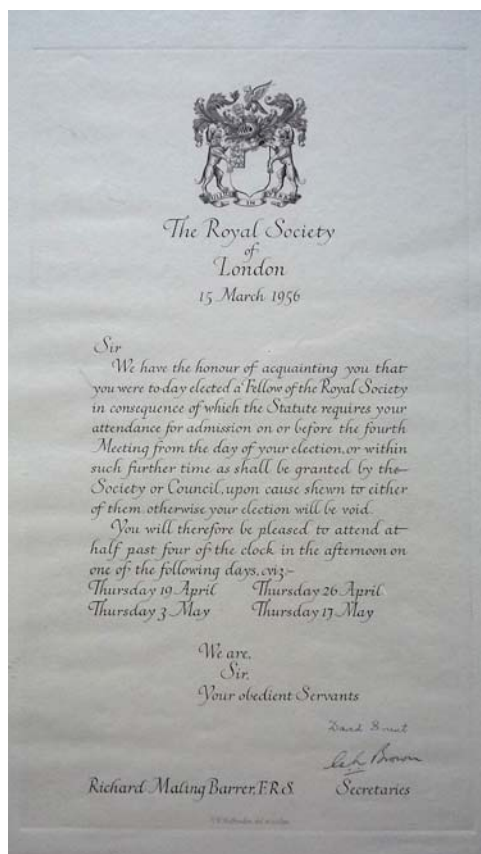 The Royal Society
of
London
15 March 1956
Sir
We have the honour of acquainting you that
you were to-day elected a Fellow of the Royal Society
in consequence of which the Statute requires your
attendance for admission on or before the fourth
Meeting from the day of your election, or within
such further time as shall be granted by the
Society or Council, upon cause shewn to either
of them otherwise your election will be void.
You will therefore be pleased to attend at
half past four of the clock in the afternoon on
one of the following days, viz:-
Thursday 19 April Thursday 26 April
Thursday 3 May Thursday 17 May
We are,
Sir,
Your obedient Servants
David Brunt
Brown
Richard Maling Barrer, F.R.S. Secretaries